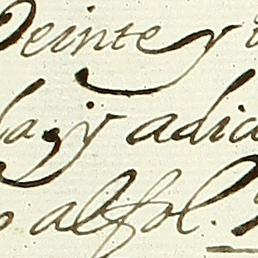 Veinte y
la, y adic
o al fol.